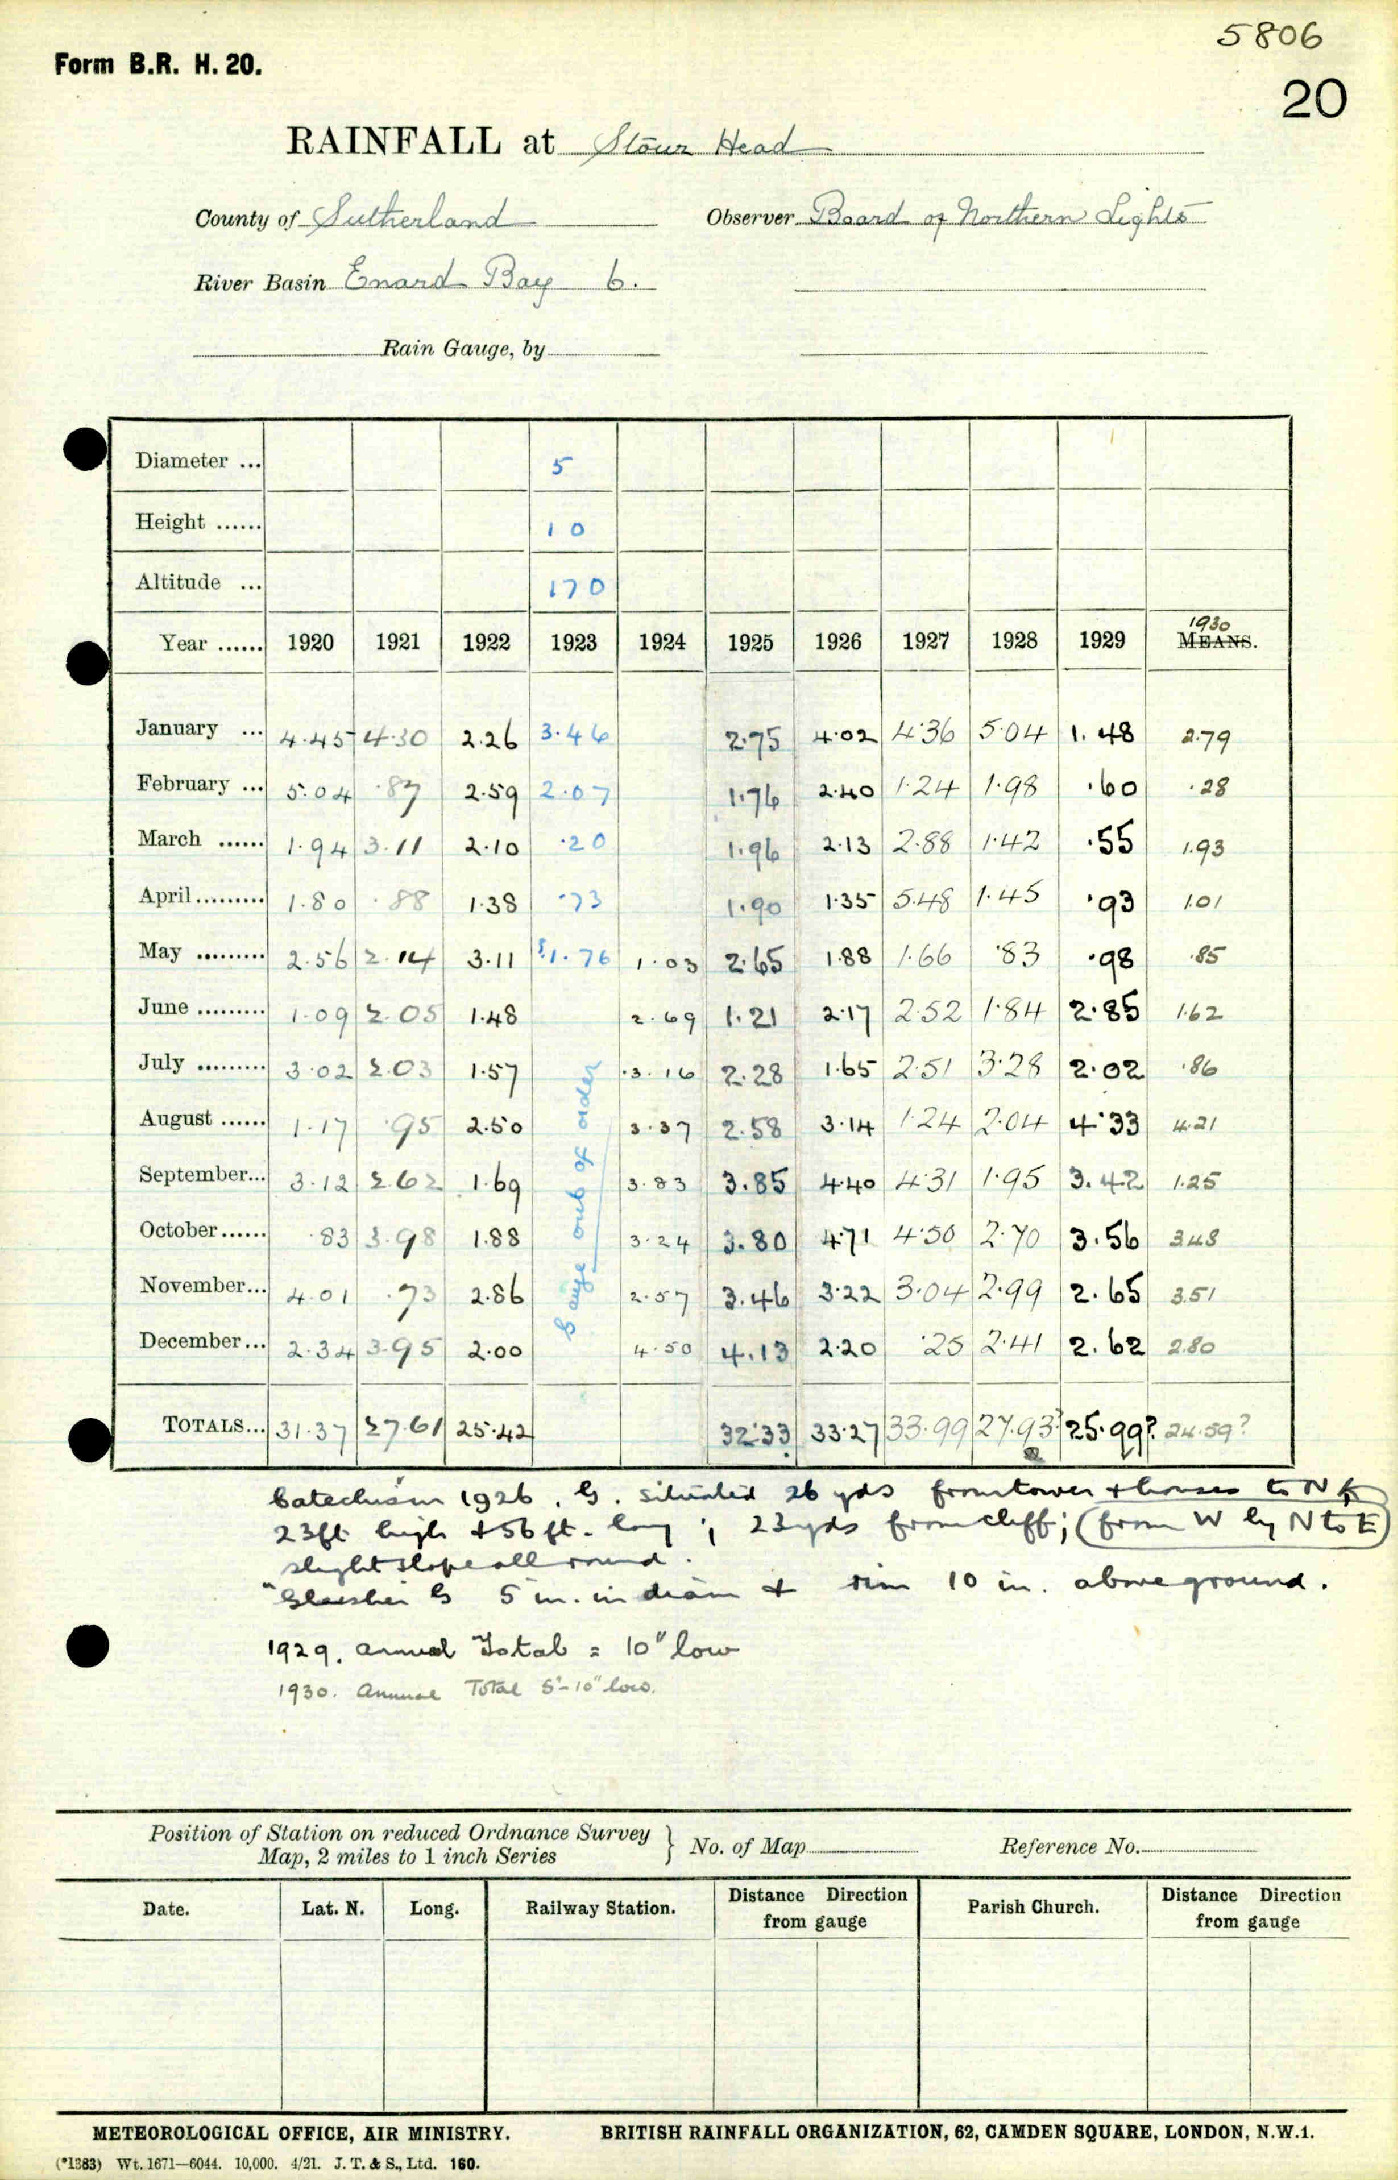 5806
Form B.R. H. 20.
20
RAINFALL at Stour Head
County of Sutherland Observer Board of Northern Lights
River Basin Enard Bay 6.
Rain Gauge, by
Diameter ... 5
Height ...... 10
Altitude ... 170
1930
Year ...... 1920 1921 1922 1923 1924 1925 1926 1927 1928 1929 MEANS.
January ... 4.45 4.30 2.26 3.46 2.75 4.02 4.36 5.04 1.48 2.79
February ... 5.04 .87 2.59 2.07 1.76 2.40 1.24 1.98 .60 .28
March ...... 1.94 3.11 2.10 .20 1.96 2.13 2.88 1.42 .55 1.93
April......... 1.80 .88 1.38 .73 1.90 1.35 5.48 1.45 .93 1.01
May ......... 2.56 2.14 3.11 1.76 1.03 2.65 1.88 1.66 .83 .98 .85
June ......... 1.09 2.05 1.48 2.69 1.21 2.17 2.52 1.84 2.85 1.62
July ......... 3.02 2.03 1.57 3.16 2.28 1.65 2.51 3.28 2.02 .86
August ...... 1.17 .95 2.50 3.37 2.58 3.14 1.24 2.04 4.33 4.21
September... 3.12 2.62 1.69 3.83 3.85 4.40 4.31 1.95 3.42 1.25
October...... .83 3.98 1.88 3.24 3.80 4.71 4.50 2.70 3.56 3.48
November... 4.01 .73 2.86 2.57 3.46 3.22 3.04 2.99 2.65 3.51
December... 2.34 3.95 2.00 4.50 4.13 2.20 .25 2.41 2.62 2.80
Gauge out of order
TOTALS... 31.37 27.61 25.42 32.33 33.27 33.99 27.93? 25.99? 24.59?
Catechism 1926. G. situated 26 yds from tower + houses to N E
23ft high + 56 ft. long; 23 yds from cliff; (from W by N to E)
slight slope all round.
"Glaisher G 5 in. in diam + rim 10 in. above ground.
1929. Annual Total = 10" low
1930. Annual Total 5"-10" low.
Position of Station on reduced Ordnance Survey
Map, 2 miles to 1 inch Series } No. of Map Reference No.
Date. Lat. N. Long. Railway Station. Distance Direction from gauge Parish Church. Distance Direction from gauge
METEOROLOGICAL OFFICE, AIR MINISTRY. BRITISH RAINFALL ORGANIZATION, 62, CAMDEN SQUARE, LONDON, N.W.1.
(*1383) Wt. 1671—6044. 10,000. 4/21. J. T. & S., Ltd. 160.